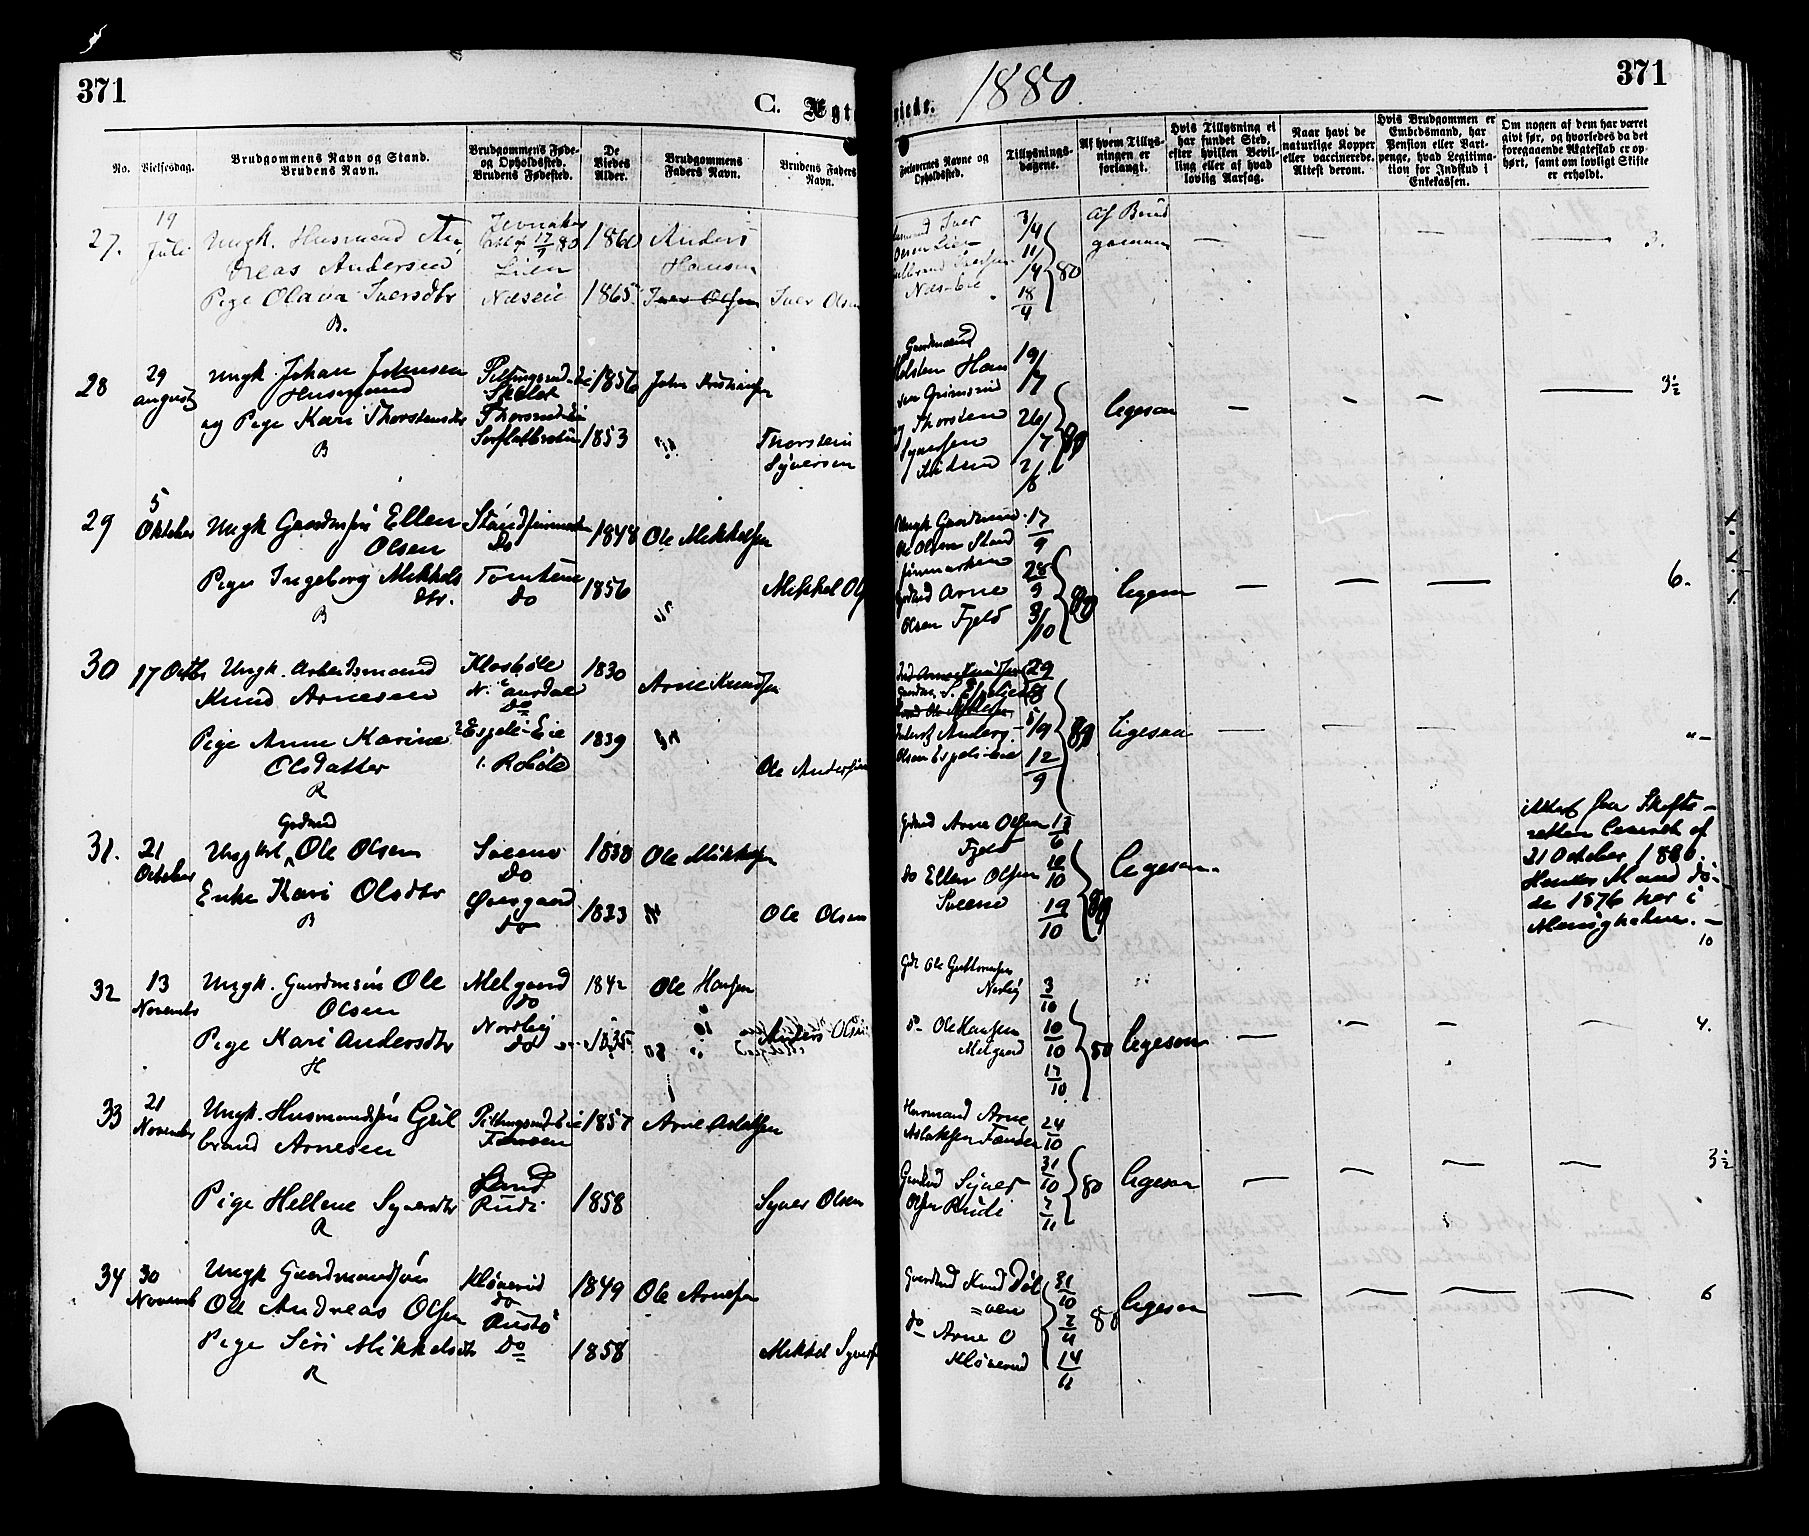 371
C. Ægt
viede.
1880.
371
No.
Vielsesdag.
Brudgommens Navn og Stand.
Brudens Navn.
Brudgommens Føde-
og Opholdssted.
Brudens Fødested.
De
Viedes
Alder.
Brudgommens
Faders Navn.
Brudens Faders
Navn.
Forlovernes Navne og
Opholdssted.
Tillysnings-
dagene.
Af hvem Tillys-
ningen er
forlangt.
Hvis Tillysning ei
har fundet Sted,
efter hvilken Bevil-
ling eller af hvad
lovlig Aarsag.
Naar havt de
naturlige Kopper
eller vaccinerede.
Attest derom.
Hvis Brudgommen er
Embedsmand, har
Pension eller Vart-
penge, hvad Legitima-
tion for Indskud i
Enkekassen.
Om nogen af dem har været
givt før, og hvorledes da det
foregaaende Ægteskab er op-
hørt, samt om lovligt Skifte
er erholdt.
27.
19
Juli
Ungk. Husmand An
dreas Andersen
Pige Olava Iversdtr
B.
Jevnaker
17/9 80
Lien
Næseie
1860
1865
Anders
Hansen
Iver Olsen
Iver Olsen
3/4
11/
14
18/4
80
Af Brud
gommen
3.
28
29
august
Ungk. Johan Johnsen
Husmand
og Pige Kari Thorstensdtr
B
1856
1853
John Kristiansen
Thorstein
Syversen
Gaardmand
Holsten Han
sen Grimsrud
og Thorsten
Syversen
19/
17
26/
/7
2/8
80
ligesaa
3½
29
5
Oktober
Ungk Gaardmsøn Ellen
Olsen
Pige Ingeborg Mikkels
dtr.
B
do
Tomterne
do
1848
1856
Ole Mikkelsen
Mikkel Ols
Ungk Gaardmand
Ole Olsen Stand
finmarken
Grdmd Arne
Olsen Fjeld
17/9
28/9
3/10
80
ligesaa
6.
30
17 Octbr
Ungk. Arbeidsmand
Knud Arnesen
Pige Anne Karine
Olsdatter
R
Klosbøle
N. aurdal
do
Espeli-Eie
i. Rolole
1830
1839
Arne Knudsen
Ole Andersen
Anders
Olsen Espelieie
29/8
5/9
12/9
80
ligesaa
" -
31.
21
October
Grdmd
Ungkl Ole Olsen
Enke Kari Olsdtr
B
Sveeno
do
Øvergaard
do
1838
1823
Ole Mikkelsen
Ole Olsen
Grdmd Arne Olsen
Fjeld
do Ellen Olsen
Sveeno
13/6
10/10
19/10
80
ligesaa
Attest fra Skifte-
retten læsendt af
21 October 1880.
Hendes Mand dø-
de 1876 her i
Menigheden. -
10
32
13
Novembr
Ungk. Gaardmsøn Ole
Olsen
Pige Kari Andersdtr
H
Melgaard
do
Nordlig
do
1842
1835
Ole Hansen
Anders Olsen
Gdr Ole Guttormsen
Nerlig
do Ole Hansen
Melgaard
3/10
10/10
17/10
80
ligesaa
4.
33
21
Novembr
Ungk. Husmandssøn Gul
brand Arnesen
Pige Hellene Syversdtr
R
Land
Rudi
1857
1858
Arne Aslaksen
Syver Olsen
Husmand Arne
Aslaksen
Gaardmd Syver
Olsen Rudi
24/10
31/10
7/11
80
ligesaa
3½
34
30
Novemb
Ungk Gaardmandssøn
Ole Andreas Olsen
Pige Siri Mikkelsdtr
R
Kløverud
do
Rustø
do
1849
1858
Ole Arnesen
Mikkel Syvers
Gaardmd Knud Døl
=ven
do Arne O
Kløverud
31/10
7/11
14/11
80
ligesaa
6